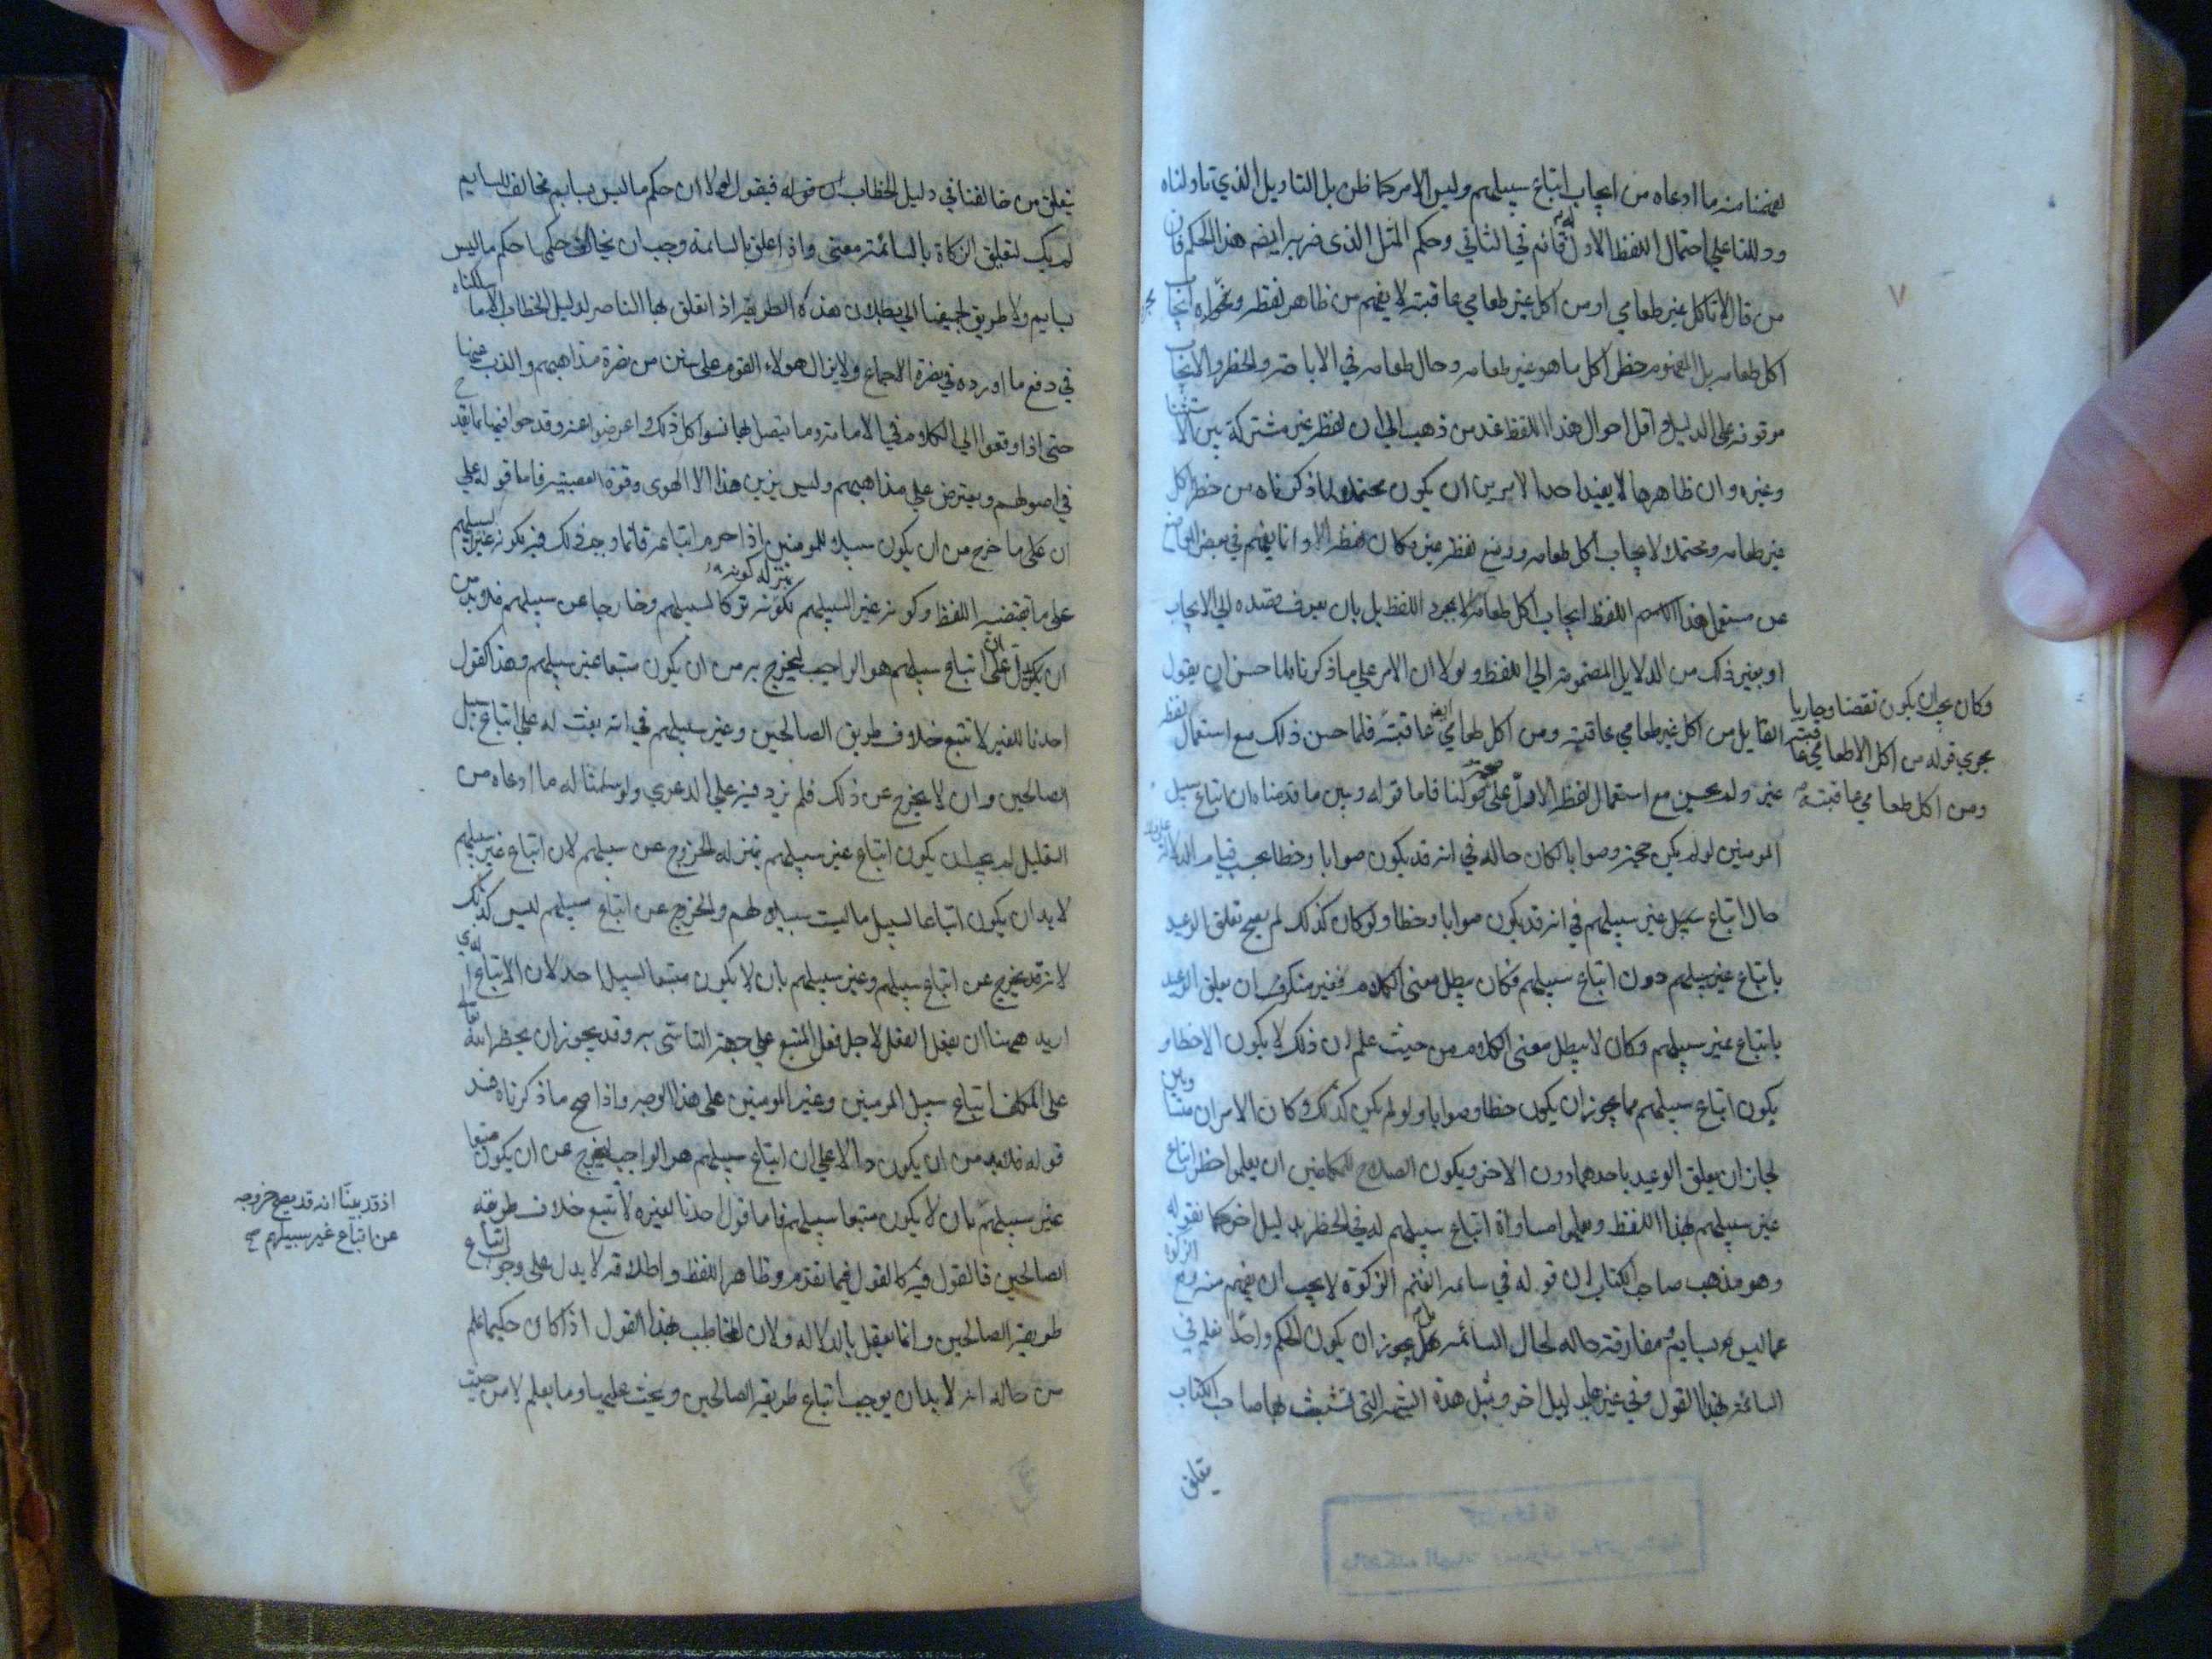 لفهمنا منه ما ادعاه من ايجاب اتباع سبيلهم وليس الامر كما ظن بل التاويل الذي تاولناه
ودللنا علي احتمال اللفظ الاول له قائم في الثاني وحكم المثل الذي ضربه ايضم هذا الحكم فان
من قال لا تاكل غير طعامي او من اكل غير طعامي عاقبته لا يفهم من ظاهر لفظه ومجرده ايجاب
اكل طعامه بل المفهوم حظر اكل ما هو غير طعامه وحال طعامه في الاباحة والحظر والايجاب
موقوفه علي الدليل واقل احوال هذا اللفظ عند من ذهب الي ان لفظة غير مشتركة بين الاستثنا
وغيره وان ظاهرها لا يفيد احد الامرين ان يكون محتملا لما ذكرناه من حظر اكل
غير طعامه ومحتملا لايجاب اكل طعامه ووضع لفظ غير مكان لفظ الا وانما يفهم في بعض المواضع
عن مستعمل هذا اللفظ ايجاب اكل طعامه لا بمجرد اللفظ بل بان يعرف قصده الي الايجاب
او بغير ذلك من الدلايل المضمومة الي اللفظ ولولا ان الامر علي ما ذكرناه لما حسن ان يقول
القايل من اكل غير طعامي عاقبته ومن اكل طعامي ايضا عاقبته فلما حسن ذلك مع استعمال لفظ
غير ولم يحسن مع استعمال لفظ الا دل علي صحة قولنا فاما قوله وبين ما قدمناه ان اتباع سبيل
المومنين لو لم يكن حجة وصوابا لكان حاله في انه قد يكون صوابا وخطا بحسب قيام الدلالة علي ذلك
حال اتباع سبيل غير سبيلهم في انه قد يكون صوابا وخطا ولو كان كذلك لم يصح تعلق الوعيد
باتباع غير سبيلهم دون اتباع سبيلهم فكان يبطل معنى الكلام فغير منكر ان يعلق الوعيد
باتباع غير سبيلهم وكان لا يبطل معنى الكلام من حيث علم ان ذلك لا يكون الا خطا و
يكون اتباع سبيلهم مما يجوز ان يكون خطا وصوابا ولو لم يكن كذلك وكان الامران متساويين
لجاز ان يعلق الوعيد باحدهما دون الاخر ويكون الصلاح للمكلفين ان يعلموا حظر اتباع
غير سبيلهم بهذا اللفظ ويعلموا مساواة اتباع سبيلهم له في الحظر بدليل اخر كما نقوله
وهو مذهب صاحب الكتاب ان قوله في سائمة الغنم الزكوة لا يجب ان يفهم منه رفع الزكوة
عما ليس بسايمة ومفارقة حاله لحال السائمه بل يجوز ان يكون الحكم واحدا نعلمه في
السائمة بهذا القول وفي غيرها بدليل اخر ومثل هذه الشبهة التي تشبث بها صاحب الكتاب
وكان يجب ان يكون نقضا وجاريا
مجري قوله من اكل الا طعامي عاقبته
ومن اكل طعامي عاقبته
يتعلق
يتعلق من خالفنا في دليل الخطاب في قوله فيقول لولا ان حكم ما ليس بسايم مخالف للسايم
لم يك لتعليق الزكاة بالسائمة معنى واذا علق بالسائمة وجب ان يخالف حكمها حكم ما ليس
بسايم ولا طريق لجميعنا الي ابطال هذه الطريقة اذا تعلق بها الناصر لدليل الخطاب الا ما سلكناه
في دفع ما اورده في نصرة الاجماع ولا يزال هولاء القوم علي سنن من نصرة مذاهبهم والذب عنها
حتى اذا وقعوا الي الكلام في الامامة وما يتصل بها نسوا كل ذلك واعرضوا عنه وقدحوا فيها بما يقدح
في اصولهم ويعترض علي مذاهبهم وليس يزين هذا الا الهوى وقوة العصبية فاما قوله علي
ان علي ما خرج من ان يكون سبيلا للمومنين اذا حرم اتباعه فانما وجب ذلك فيه لكونه غير سبيلهم
علي ما يقتضيه اللفظ وكونه غير السبيلهم بمنزلة كونه تركا لسبيلهم وخارجا عن سبيلهم فلا بد من
ان يدل علي ان اتباع سبيلهم هو الواجب ليخرج به من ان يكون متبعا غير سبيلهم وهذا كقول
احدنا للغير لا تتبع خلاف طريق الصالحين وغير سبيلهم في انه بعث له علي اتباع سبيل
الصالحين وان لا يخرج عن ذلك فلم يزد فيه علي الدعوي ولو سلمنا له ما ادعاه من
التعليل لم يجب ان يكون اتباع غير سبيلهم بمنزله الخروج عن سبيلهم لان اتباع غير سبيلهم
لا بد ان يكون اتباعا لسبيل ما ليست سبيلا لهم والخروج عن اتباع سبيلهم ليس كذلك
لانه قد يخرج عن اتباع سبيلهم وغير سبيلهم بان لا يكون متبعا لسبيل احد لان الاتباع الذي
اريد ههنا ان يفعل الفعل لاجل فعل المتبع علي جهة التاسي به وقد يجوز ان يحظر الله تعالي
علي المكلف اتباع سبيل المومنين وغير المومنين علي هذا الوجه واذا صح ما ذكرناه فسد
قوله فلا بد من ان يكون دالا علي ان اتباع سبيلهم هو الواجب ليخرج عن ان يكون متبعا
غير سبيلهم بان لا يكون متبعا سبيلهم فاما قول احدنا لغيره لا تتبع خلاف طريقه
الصالحين فالقول فيه كالقول فيما تقدم وظاهر اللفظ واطلاقه لا يدل علي وجوب اتباع
طريقة الصالحين وانما يعقل بالدلاله ولان المخاطب بهذا القول اذا كان حكيما علم
من حاله انه لا بد ان يوجب اتباع طريقة الصالحين ويحث عليها وما يعلم لا من حيث
اذ قد بينا انه قد يصح خروجه
عن اتباع غير سبيلهم صح